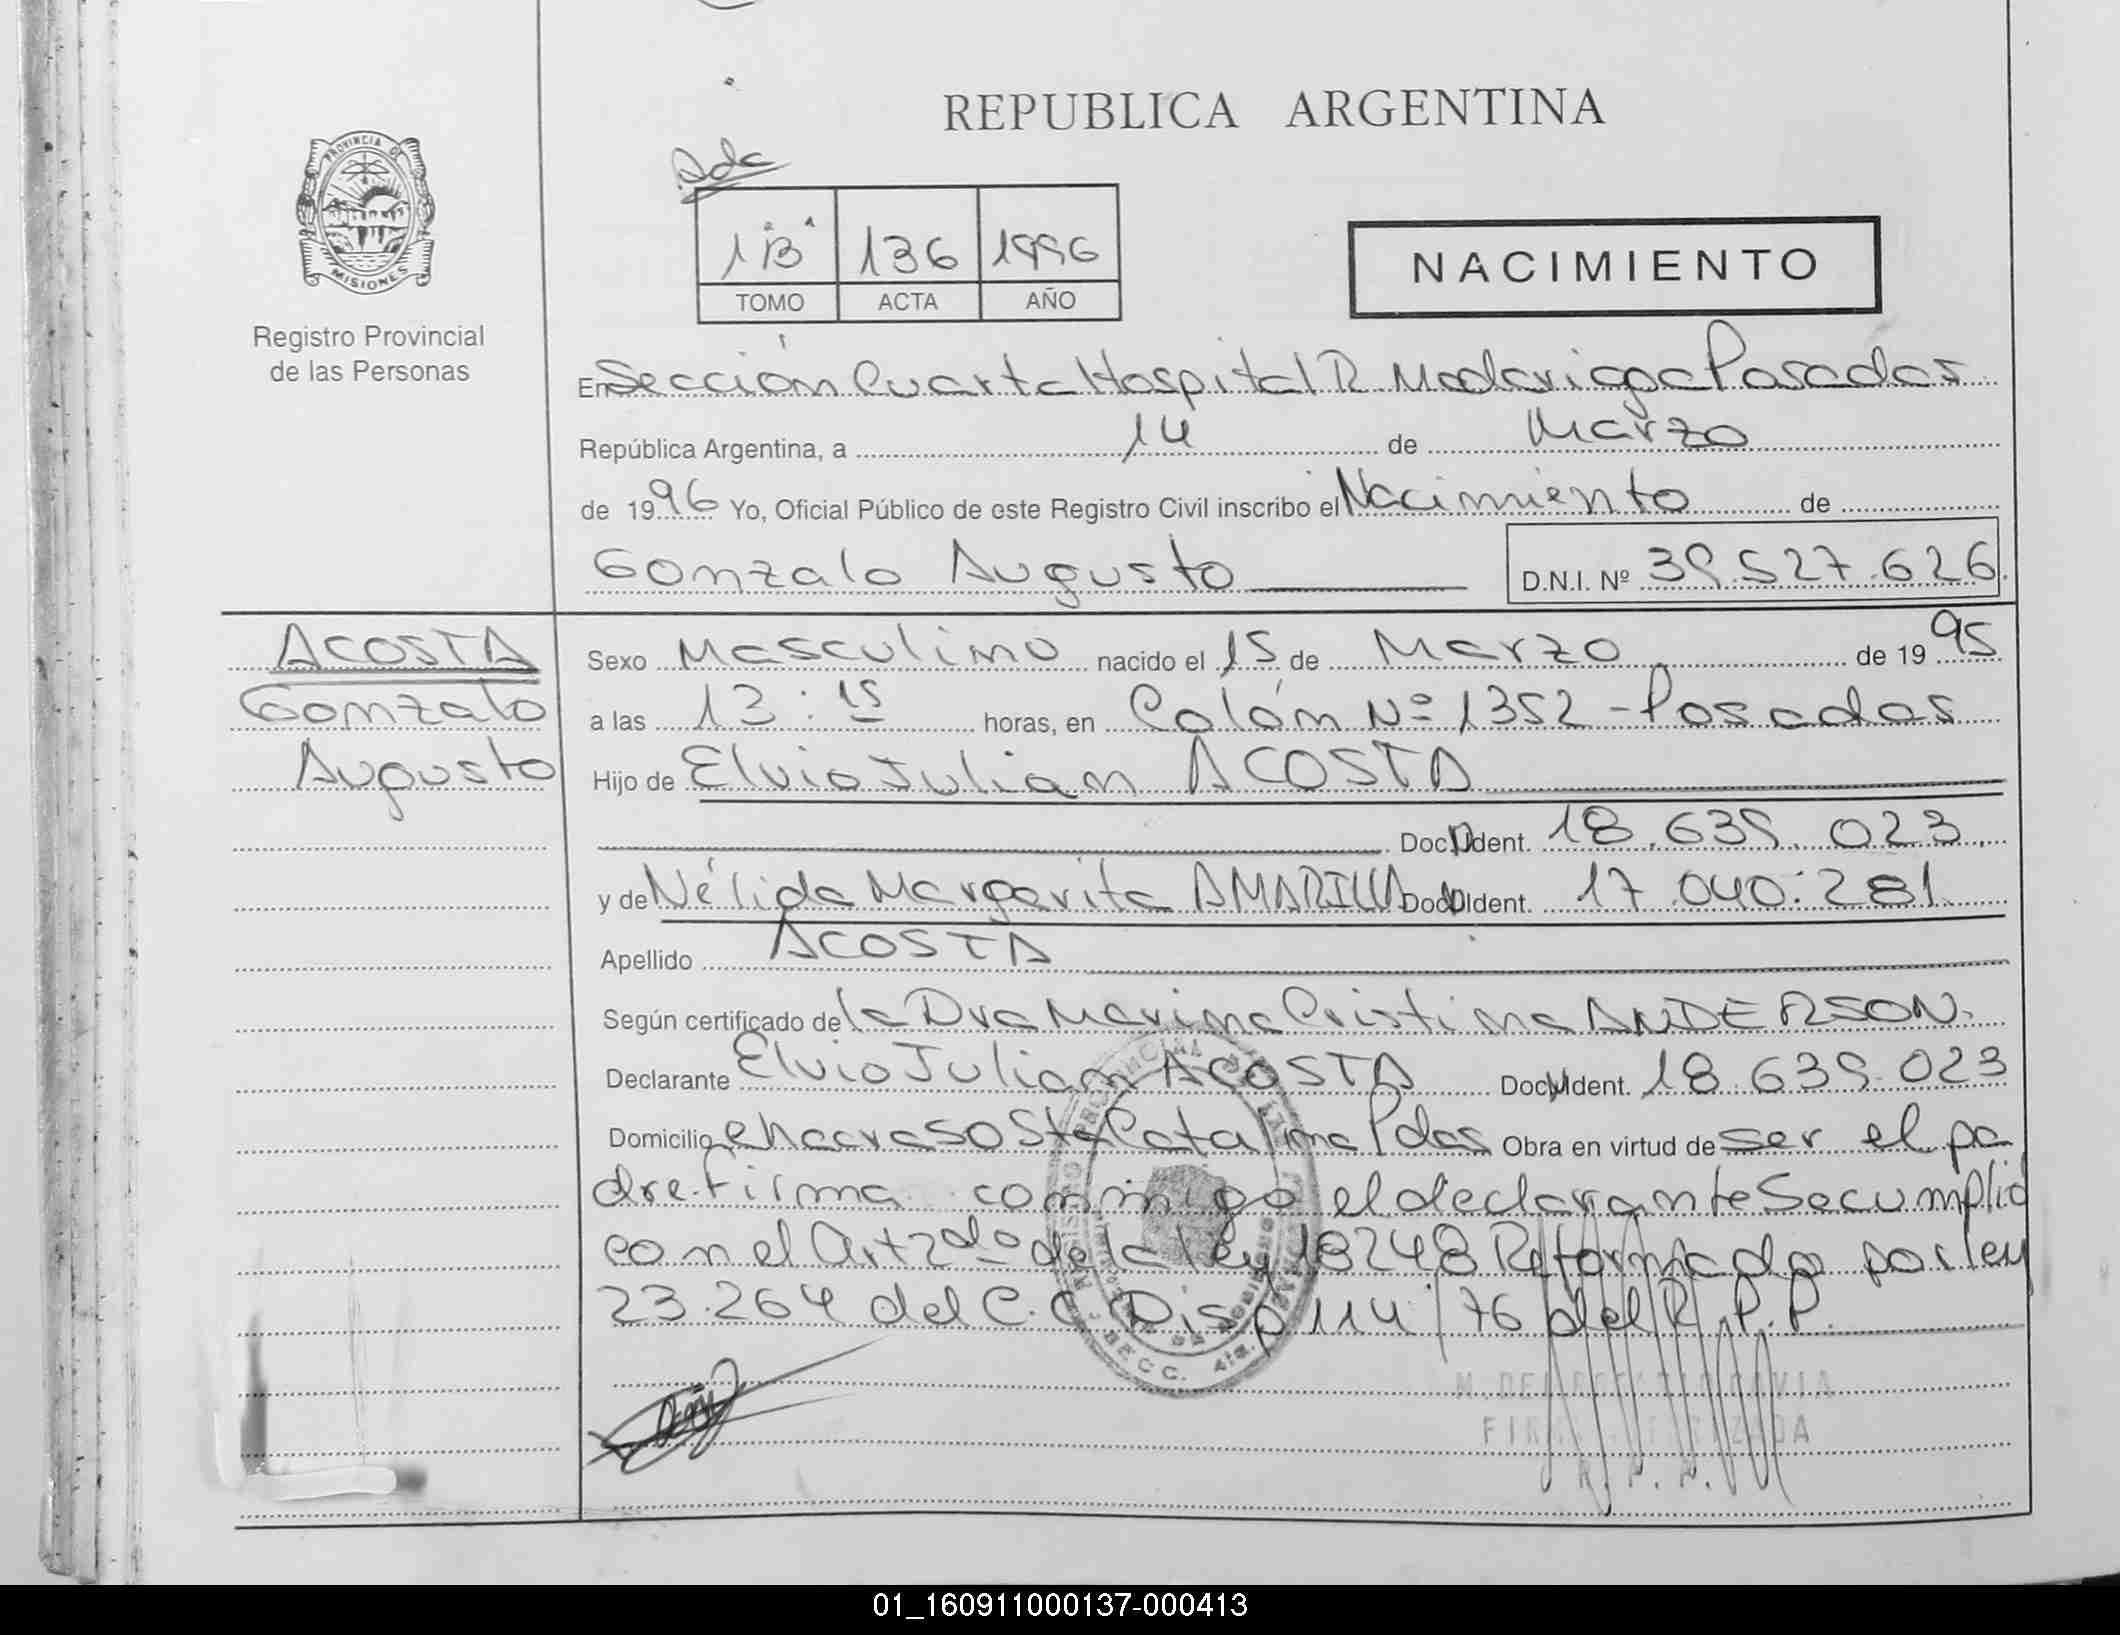 REPUBLICA ARGENTINA
PROVINCIA DE
MISIONES
Registro Provincial
de las Personas
1 "B" 136 1996
TOMO ACTA AÑO
NACIMIENTO
En Sección Cuarta Hospital R. Madariaga Posadas
República Argentina, a 14 de Marzo
de 1996 Yo, Oficial Público de este Registro Civil inscribo el Nacimiento de
Gonzalo Augusto D.N.I. Nº 39.527.626
ACOSTA
Gonzalo
Augusto
Sexo Masculino nacido el 15 de Marzo de 1995
a las 13:15 horas, en Colón Nº 1352 - Posadas
Hijo de Elvio Julian ACOSTA
Doc. Ident. 18.639.023
y de Nélida Margarita AMARILLA Doc. Ident. 17.040.281
Apellido ACOSTA
Según certificado de la Dra Marina Cristina ANDERSON
Declarante Elvio Julian ACOSTA Doc. Ident. 18.639.023
Domicilio Chacra 50 Sta Catalina Pdas Obra en virtud de ser el pa
dre. firma conmigo el declarante Se cumplió
con el Art 2do de la ley 18248 Reformado por ley
23.264 del C.C Disp 114/76 del R.P.P.
FIRMA AUTORIZADA
R.P.P.
01_160911000137-000413